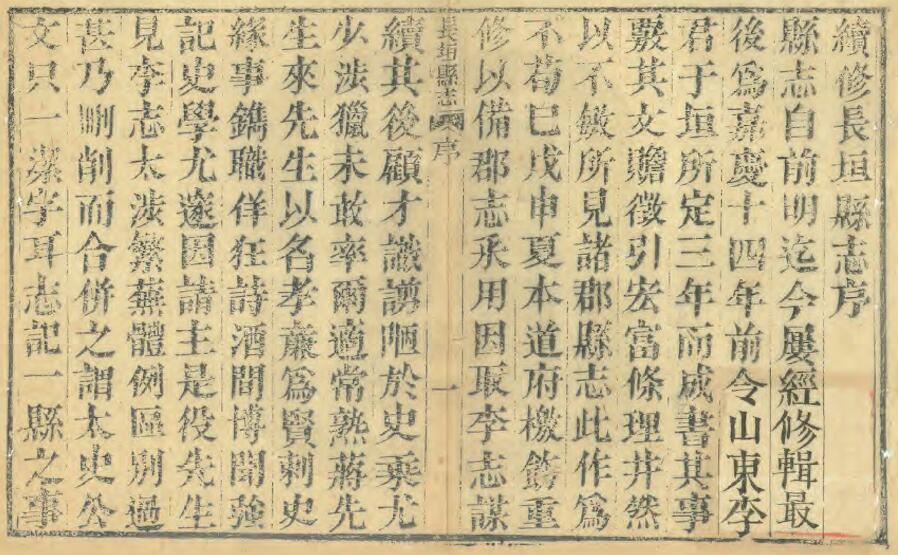 續修長垣縣志序
縣志自前明迄今屢經修輯最
後爲嘉慶十四年前令山東李
君于垣所定三年而成書其事
覈其文贍徵引宏富條理井然
以不敏所見諸郡縣志此作爲
不苟已戊申夏本道府檄飭重
修以備郡志承用因取李志謀
長垣縣志 序 一
續其後顧才識謭陋於史乘尤
少涉獵未敢率爾適常熟蔣先
生來先生以名孝廉爲賢刺史
緣事鐫職佯狂詩酒間博聞強
記史學尤邃因請主是役先生
見李志太涉繁蕪體例區別過
甚乃刪削而合併之謂太史公
文只一潔字耳志記一縣之事